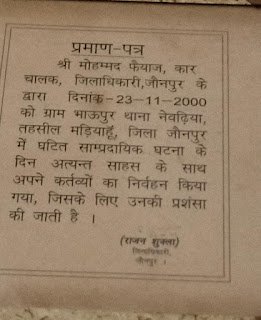 प्रमाण-पत्र
श्री मोहम्मद फैयाज, कार
चालक, जिलाधिकारी,जौनपुर के
द्वारा दिनांक-23-11-2000
को ग्राम भाऊपुर थाना नेवढ़िया,
तहसील मड़ियाहूँ, जिला जौनपुर
में घटित साम्प्रदायिक घटना के
दिन अत्यन्त साहस के साथ
अपने कर्तव्यों का निर्वहन किया
गया, जिसके लिए उनकी प्रशंसा
की जाती है ।
(राजन शुक्ला)
जिलाधिकारी,
जौनपुर ।